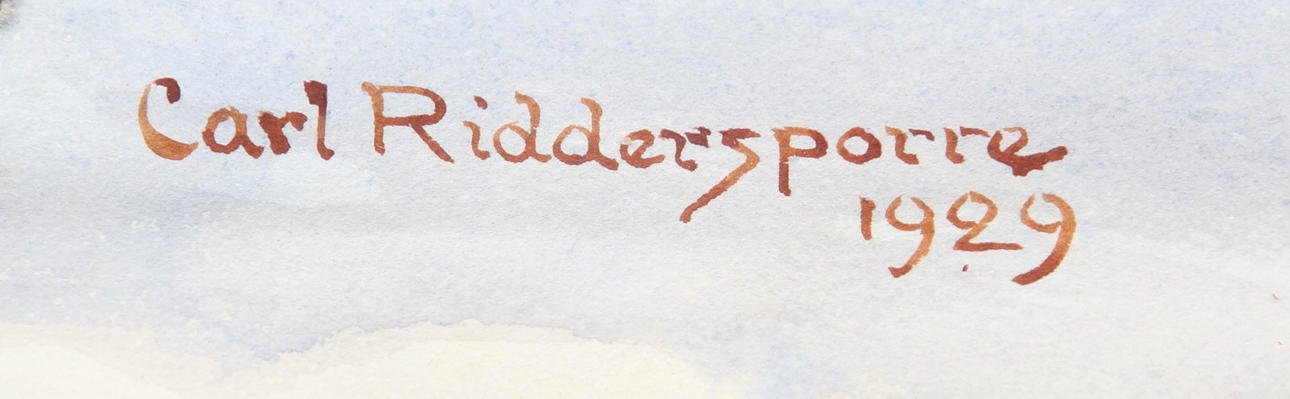 Carl Riddersporre
1929